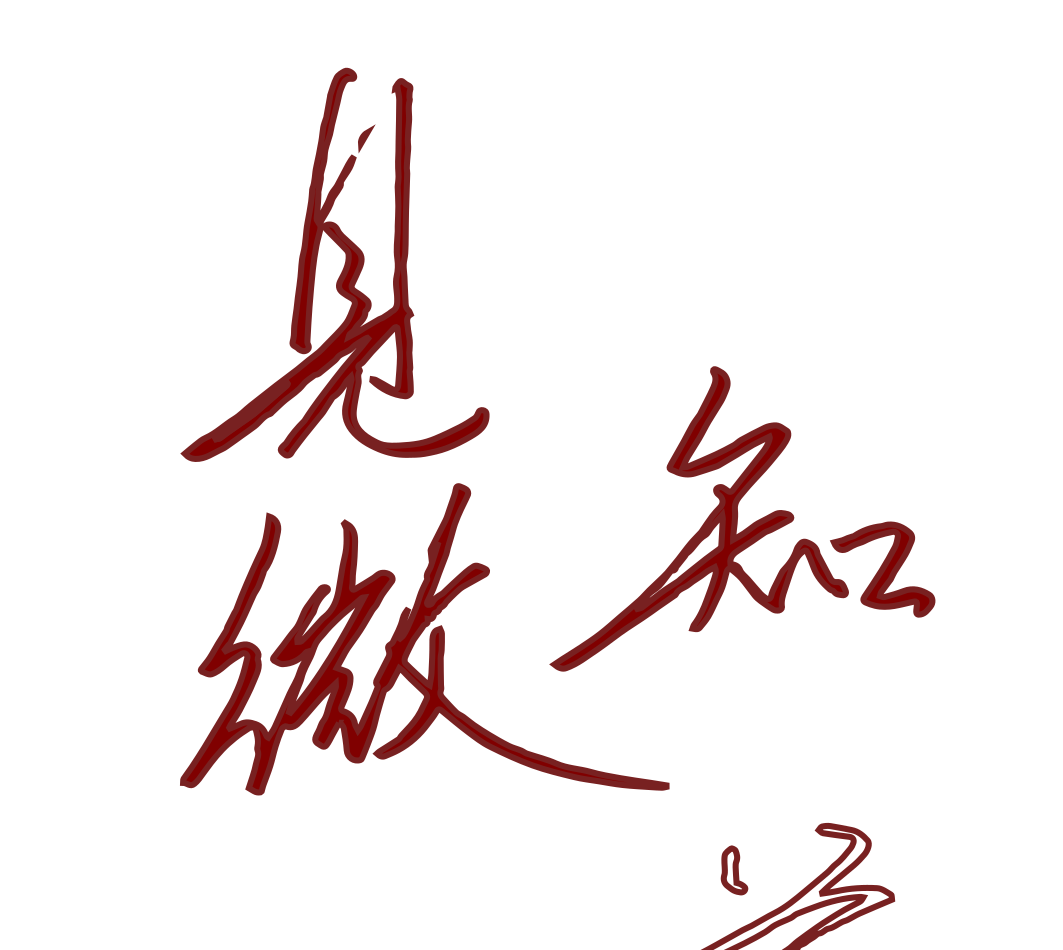 見微
知